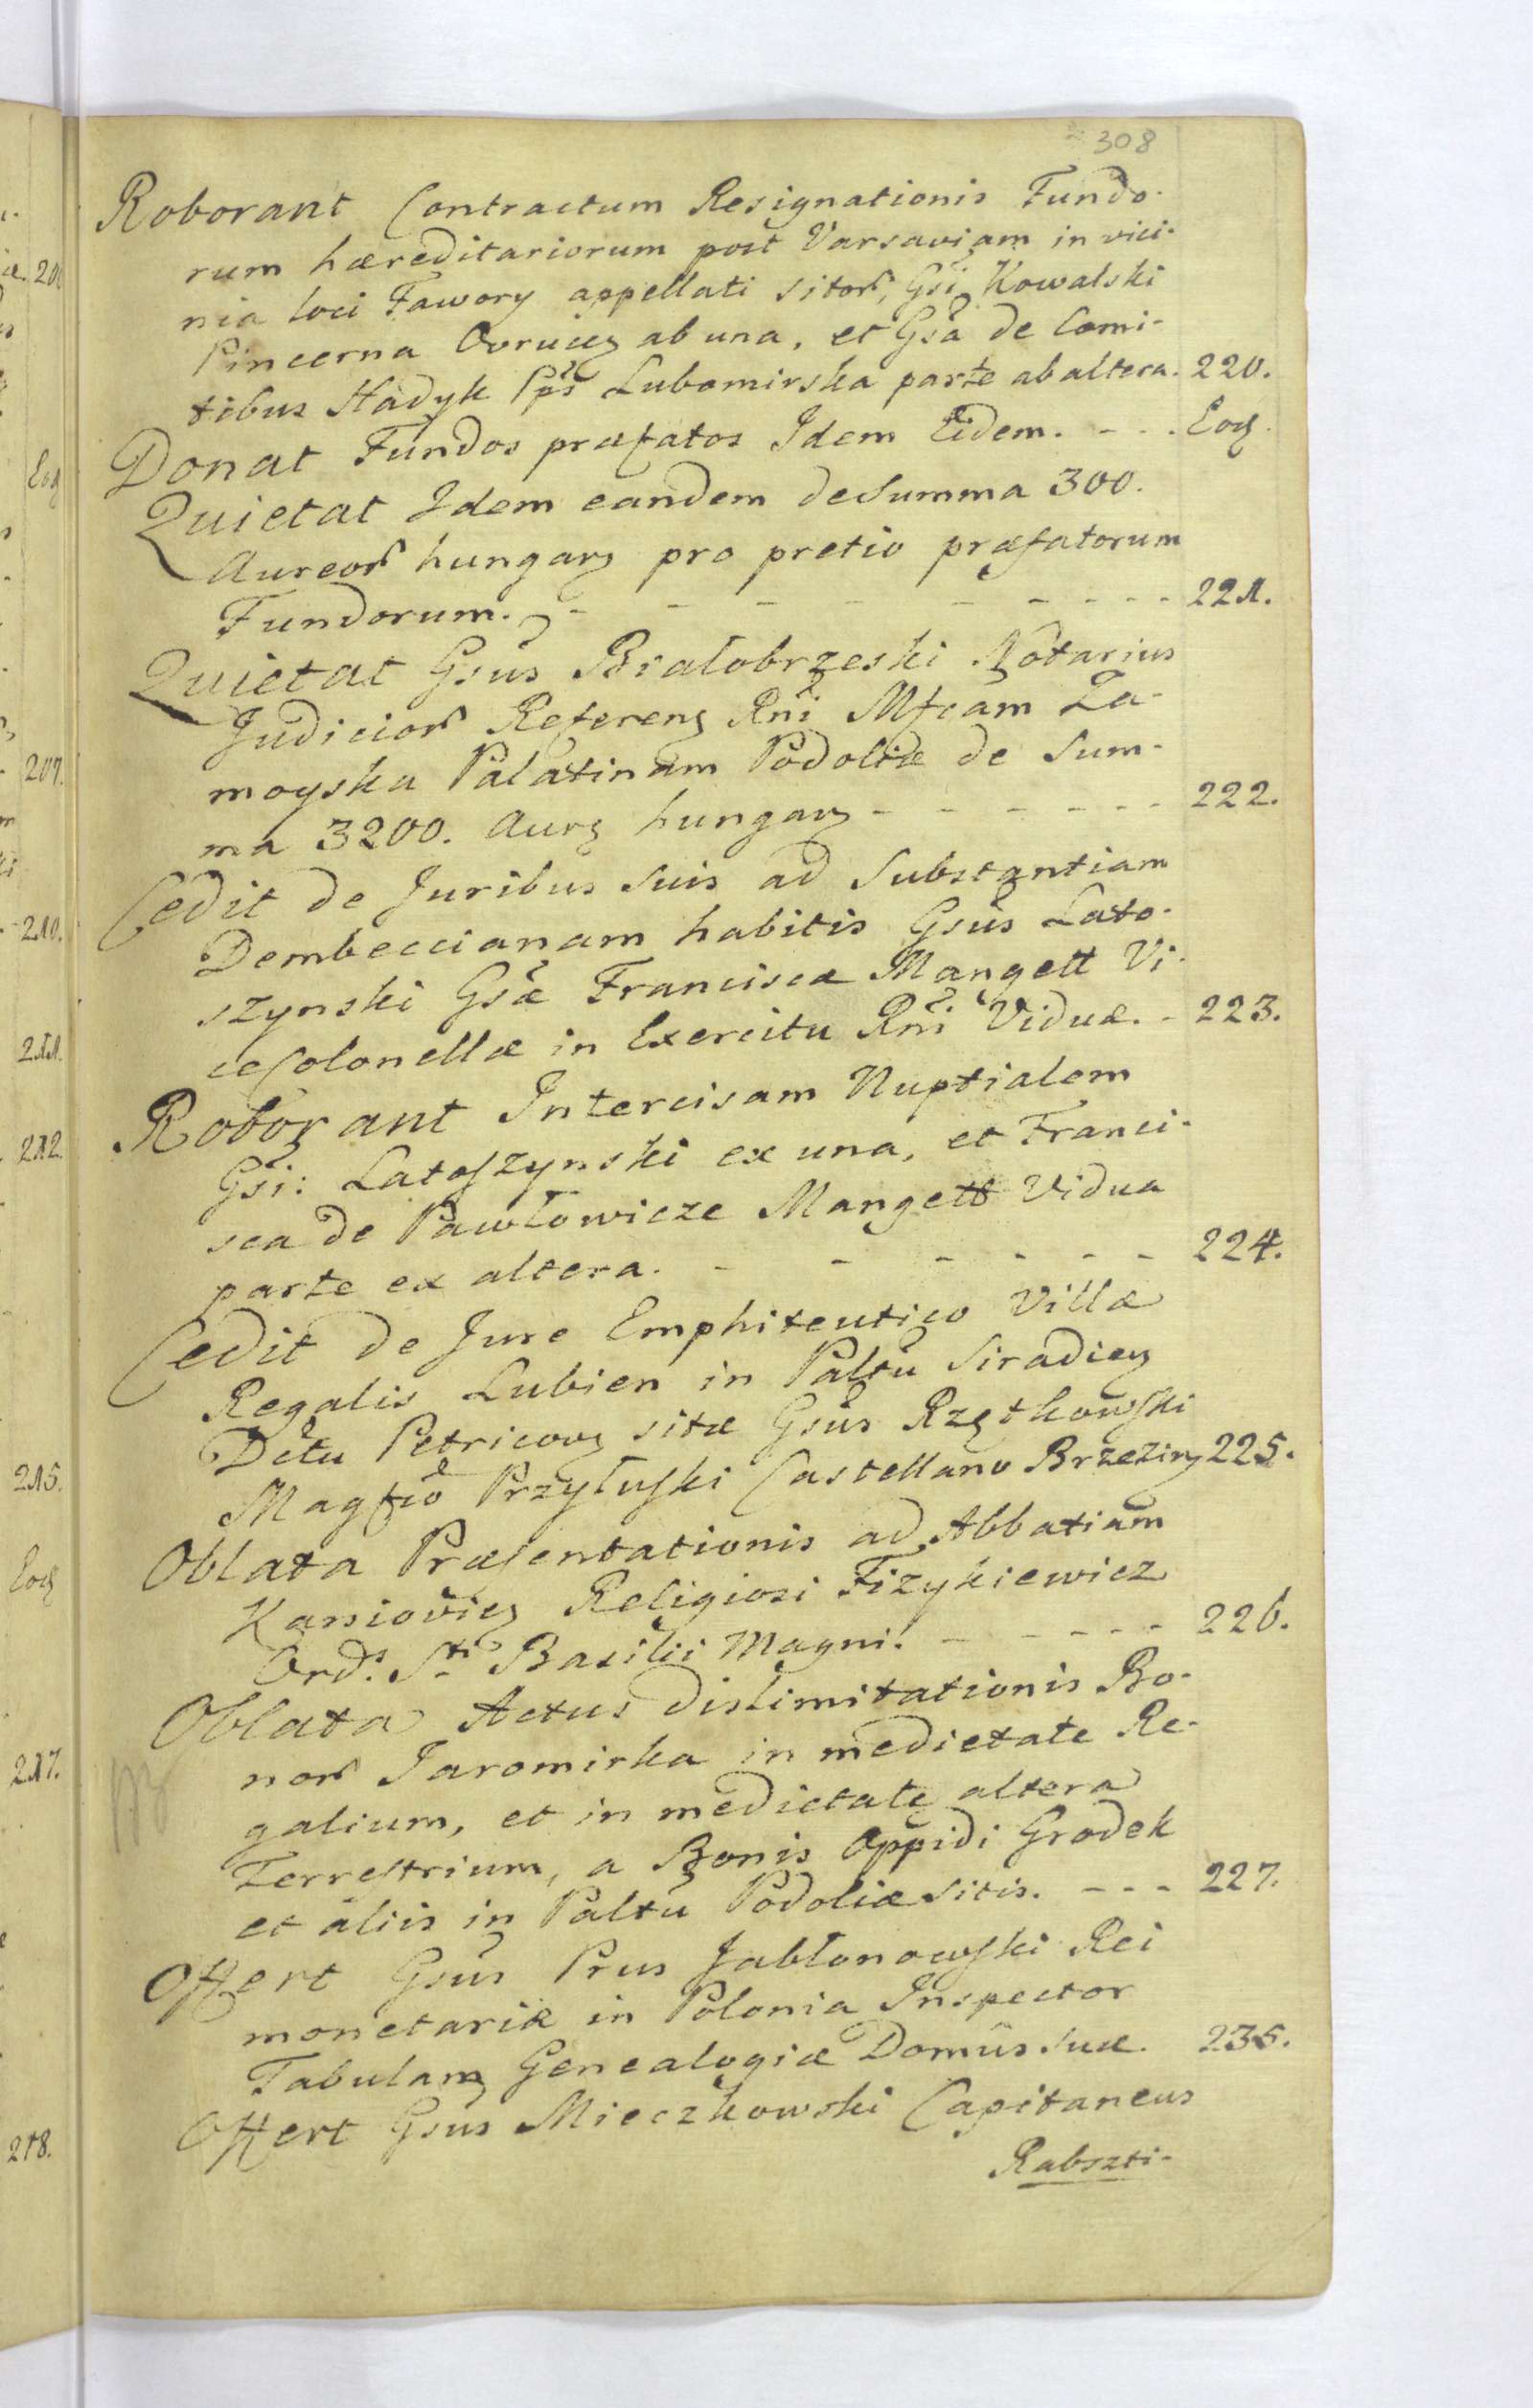 308
Roborant Contractum Resignationis Fundo-
rum hæreditariorum post Varsaviam in vici-
nia loci Fawory appellati sitor, Gsi Kowalski
Pincerna Ovrucz ab una, et Gsa de Comi-
tibus Hadyk Pps Lubomirska parte ab altera. 220.
Donat Fundos præfatos Idem Eidem. - - - Eod.
Quietat Idem eandem de Summa 300.
Aureor hungarz pro pretio præfatorum
Fundorum. - - - - - - - - - 221.
Quietat Gsus Białobrzeski Notarius
Judicior Referenz Rni Mfcam Za-
moyska Palatinam Podoliæ de Sum-
ma 3200. Aurz hungarz - - - - - - 222.
Cedit de Juribus Suis ad Substantiam
Dembeccianam habitis Gsus Lato-
szynski Gsæ Francisca Mangett Vi-
ceColonellæ in Exercitu Rni Viduæ. - 223.
Roborant Intercisam Nuptialem
Gsi: Latoszynski ex una, et Franci-
sca de Pawłowicze Mangett Vidua
parte ex altera. - - - - - - - 224.
Cedit de Jure Emphiteutico Villæ
Regalis Lubien in Paltu Siradiez
Dctu Petricovz sitæ Gsus Rzętkowski
Magfco Przyłuski Castellano Brzezinz 225.
Oblata Præsentationis ad Abbatiam
Kaniovicz Religiosi Fizykiewicz
Ord: Sti Basilii Magni. - - - - - 226.
Oblata Actus dislimitationis Bo-
nor Jaromirka in medietate Re-
galium, et in medietate altera
Terrestrium, a Bonis Oppidi Grodek
et aliis in Paltu Podoliæ sitis. - - - 227.
Offert Gsus Prus Jabłonowski Rei
monetariæ in Polonia Inspector
Tabulam Genealogiæ Domûs suæ. 235.
Offert Gsus Mieczkowski Capitaneus
Rabszti-
200
Eod
207.
210.
211.
212.
215.
Eod
217.
218.